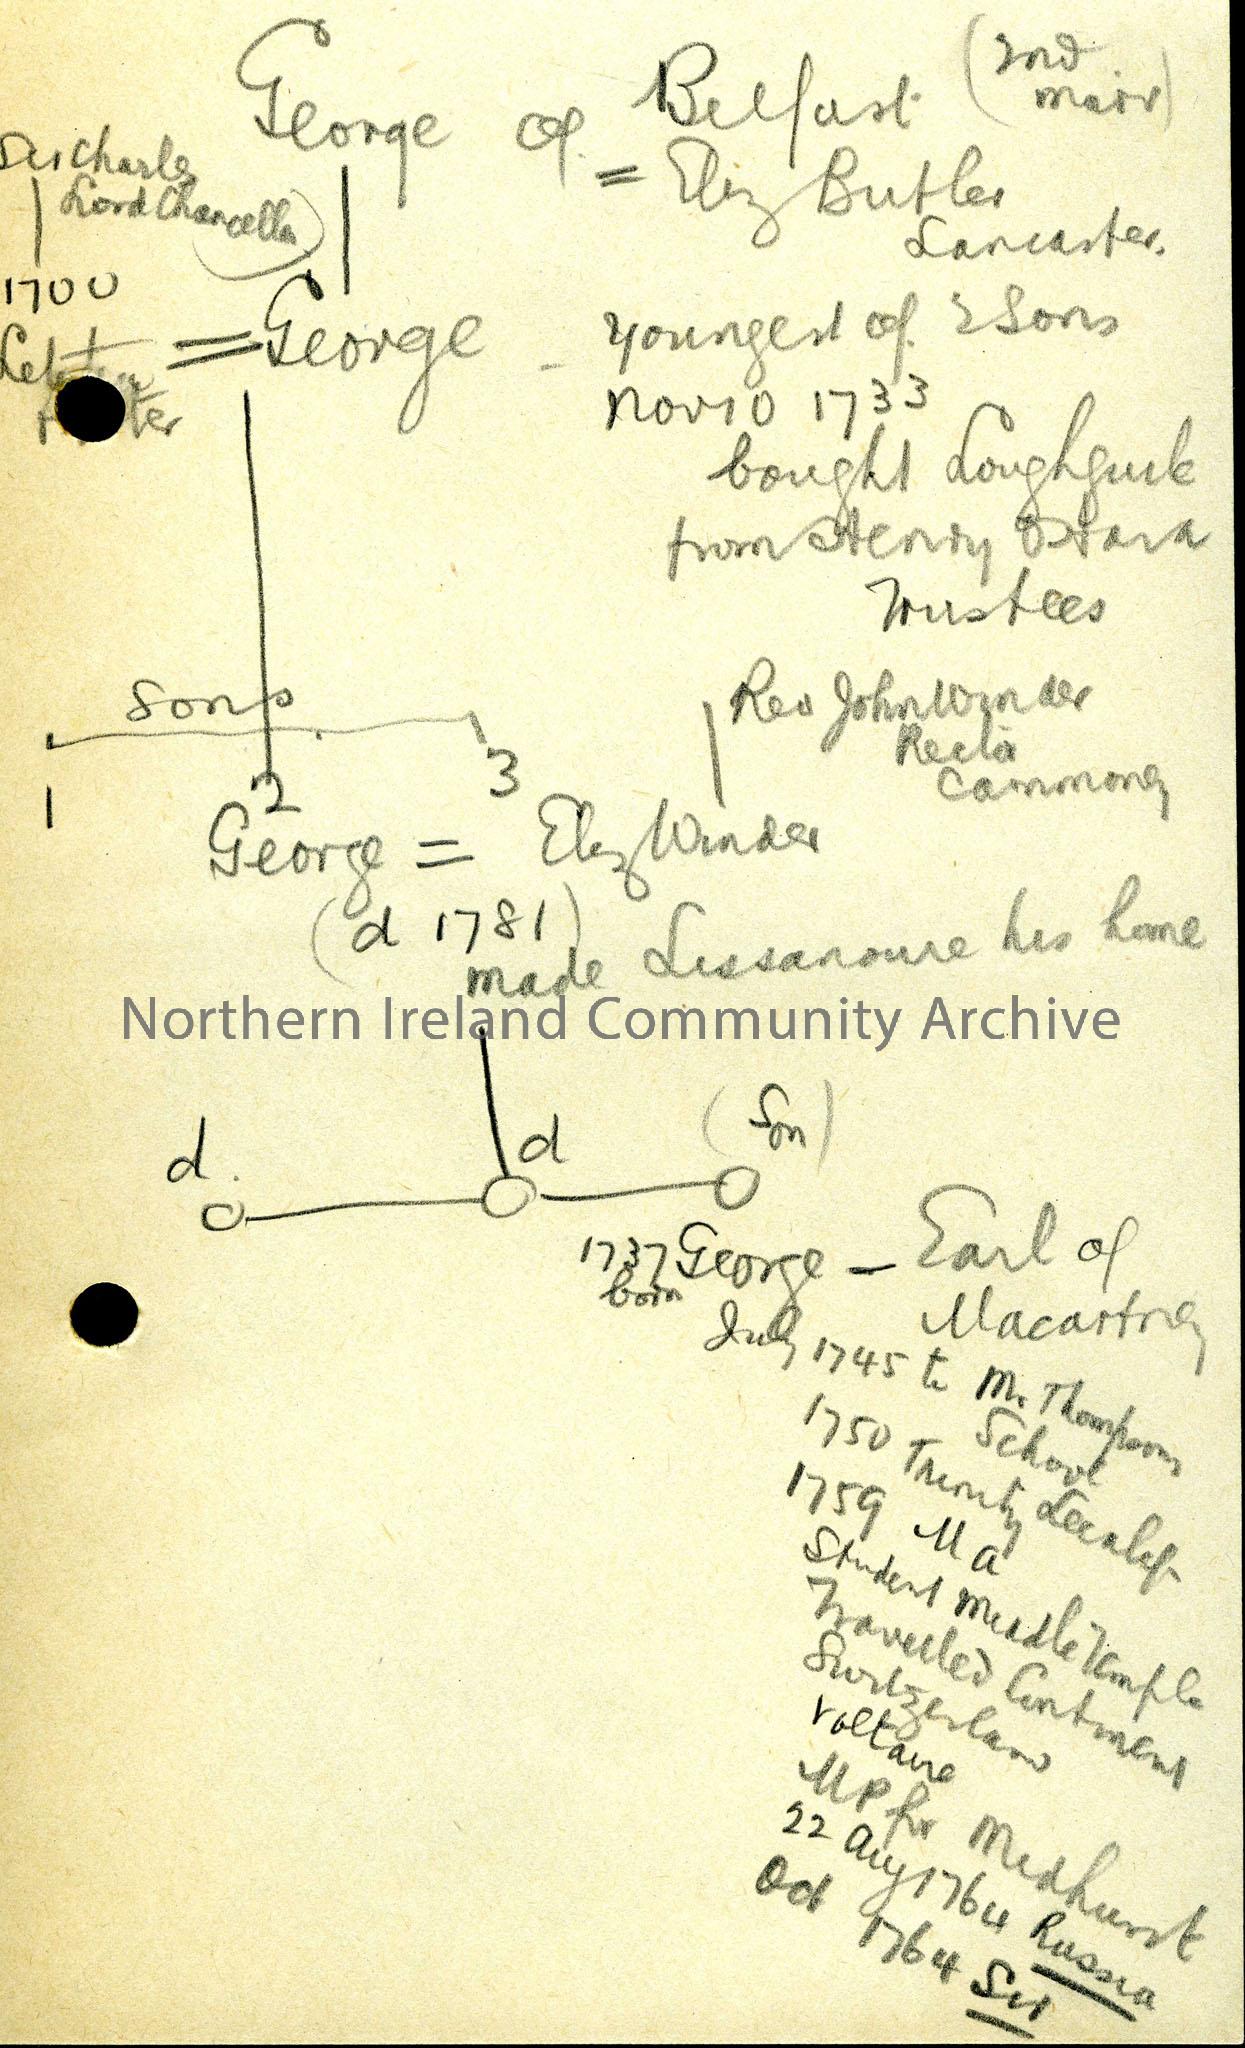 George of Belfast (2nd
marr)
= Eliz Butler
Lancaster.
Sir Charles
Lord Chancellor
1700
= George - youngest of 2 Sons
Nov 10 1733
bought Loughguile
from Henry O'Hara
Trustees
Sons
1 2 3
Rev John Winder
Rector
Carnmoney
George = Eliz Winder
(d 1781)
made Lissanoure his home
Northern Ireland Community Archive
d. d (Son)
1737 George - Earl of
born Macartney
July 1745 to Mr Thompsons
School
1750 Trinity
1759 Ma
Student Middle Temple
Travelled Continent
Switzerland
Voltaire
MP for Medhurst
22 Aug 1764 Russia
Oct 1764 Sir